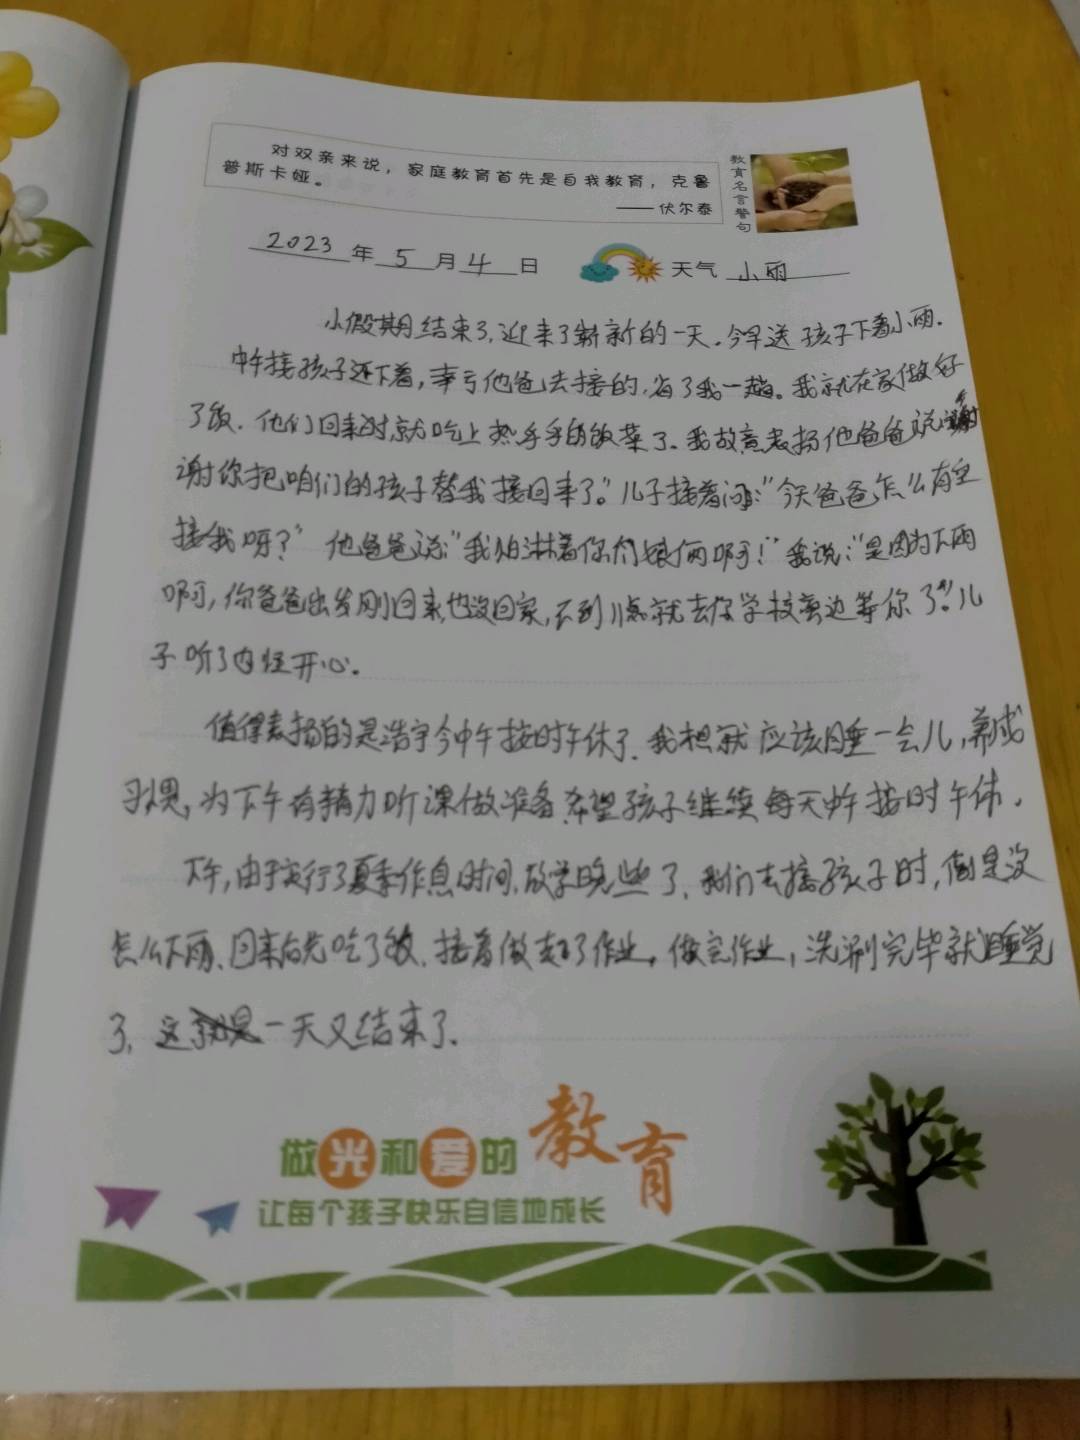 对双亲来说，家庭教育首先是自我教育，克鲁
普斯卡娅。
——伏尔泰
教育名言警句
2023年5月4日 天气 小雨
小假期结束了,迎来了崭新的一天。今早送孩子下着小雨.
中午接孩子还下着,幸亏他爸去接的,省了我一趟。我就在家做好
了饭.他们回来时就吃上热乎乎的饭菜了.我故意表扬他爸爸说:"谢
谢你把咱们的孩子替我接回来了。"儿子接着问:"今天爸爸怎么有空
接我呀?"他爸爸说:"我怕淋着你们娘俩啊!"我说:"是因为下雨
啊,你爸爸出发刚回来,也没回家,不到11点就去你学校旁边等你了。"儿
子听了内经开心.
值得表扬的是浩宇今中午按时午休了.我想就应该睡一会儿,养成
习惯,为下午有精力听课做准备.希望孩子继续每天中午按时午休.
下午,由于实行了夏季作息时间,放学晚些了.我们去接孩子时,倒是没
怎么下雨.回来后先吃了饭.接着做起了作业.做完作业,洗涮完毕就睡觉
了,这一天又结束了.
做光和爱的教育
让每个孩子快乐自信地成长